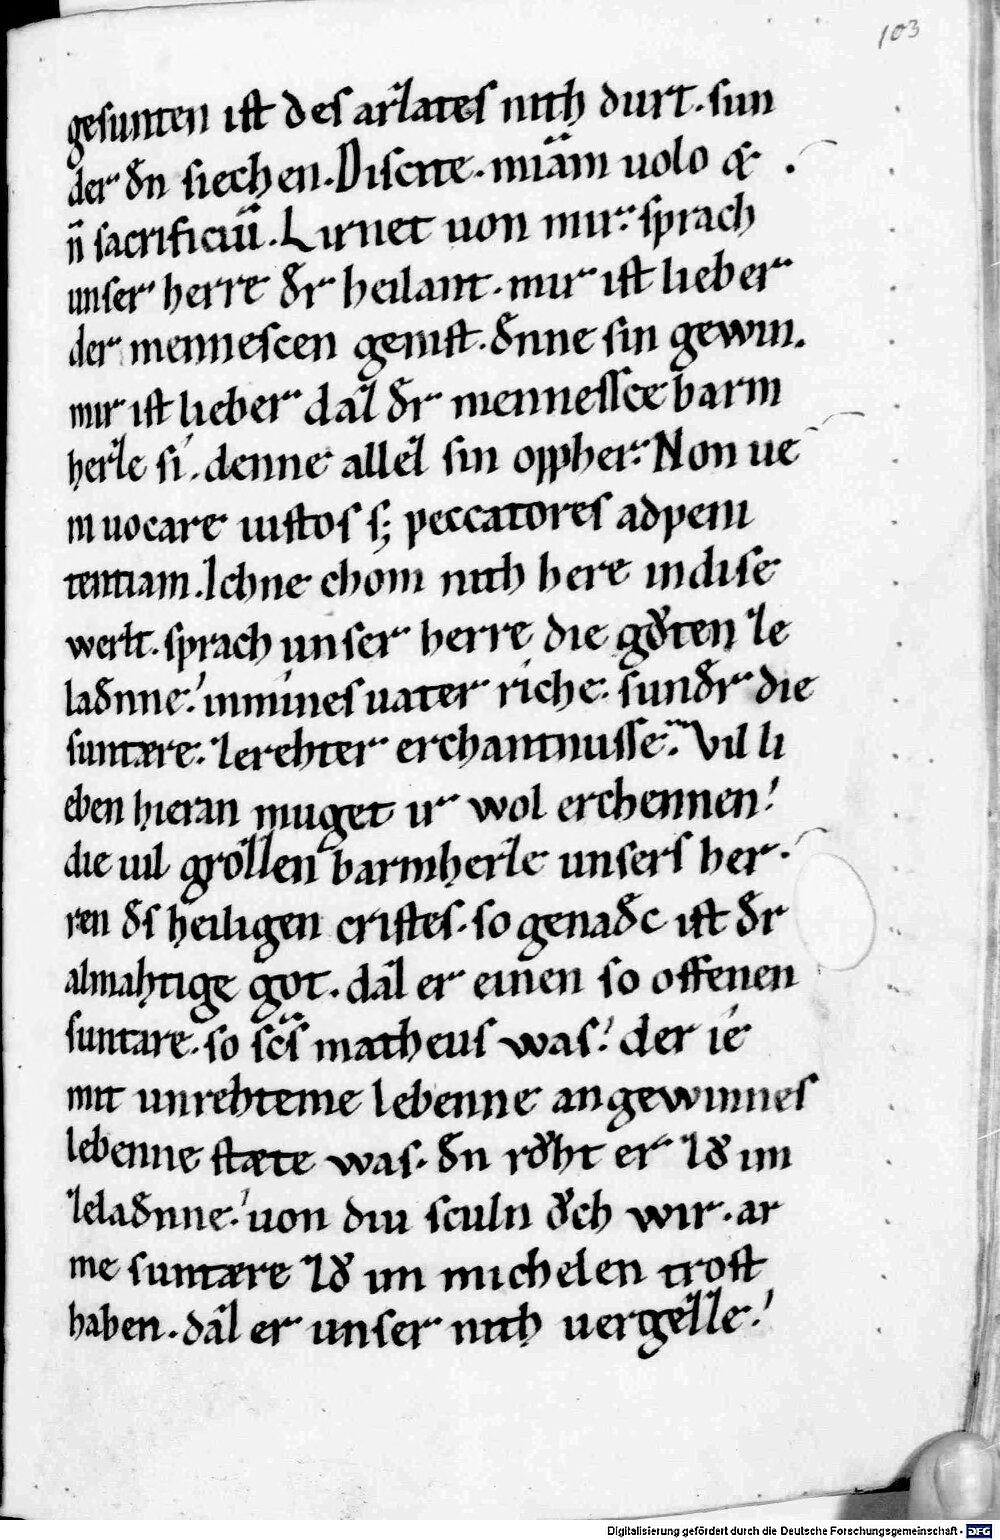 103
gesunten ist des arzates nith durt. sun
der dn siechen. Discite. miam uolo &
n̄ sacrificiū. Lirnet uon mir. sprach
unser herre dr heilant. mir ist lieber
der mennescen genist. dnne sin gewin.
mir ist lieber daz dr mennessce barm
herze si. denne allez sin oppher. Non ue
ni uocare iustos s; peccatores ad peni
tentiam. Ichne chom nith here in dise
werlt. sprach unser herre die gůten ze
ladnne. in mines uater riche. sundr die
suntære. ze rehter erchantnusse. Vil li
eben hieran muget ir wol erchennen.
die uil grozzen barmherze unsers her
ren ds heiligen cristes. so genadc ist dr
almahtige got. daz er einen so offenen
suntare. so scs̄ matheus was. der ie
mit unrehteme lebenne an gewinnes
lebenne stæte was. dn růht er zů im
ze ladnne. uon diu sculn ǒch wir. ar
me suntære zů im michelen trost
haben. daz er unser nith uergezze.
Digitalisierung gefördert durch die Deutsche Forschungsgemeinschaft - DFG